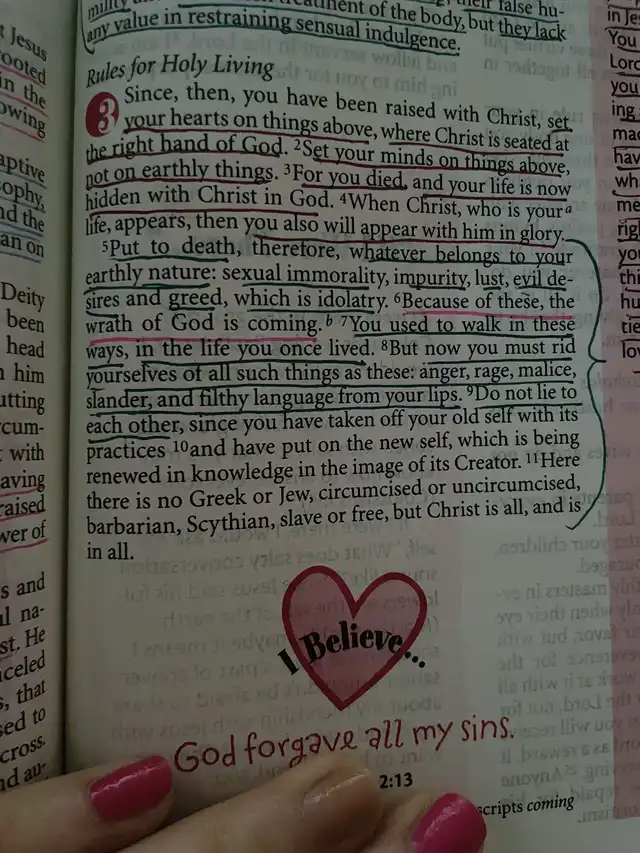 t Jesus
ooted
in the
owing
aptive
sophy,
nd the
an on
Deity
been
head
him
utting
rcum-
with
aving
raised
wer of
s and
ul na-
st. He
nceled
s, that
sed to
cross.
nd au-
false hu-
treatment of the body, but they lack
any value in restraining sensual indulgence.
Rules for Holy Living
3 Since, then, you have been raised with Christ, set
your hearts on things above, where Christ is seated at
the right hand of God. 2Set your minds on things above,
not on earthly things. 3For you died, and your life is now
hidden with Christ in God. 4When Christ, who is your a
life, appears, then you also will appear with him in glory.
5Put to death, therefore, whatever belongs to your
earthly nature: sexual immorality, impurity, lust, evil de-
sires and greed, which is idolatry. 6Because of these, the
wrath of God is coming. b 7You used to walk in these
ways, in the life you once lived. 8But now you must rid
yourselves of all such things as these: anger, rage, malice,
slander, and filthy language from your lips. 9Do not lie to
each other, since you have taken off your old self with its
practices 10and have put on the new self, which is being
renewed in knowledge in the image of its Creator. 11Here
there is no Greek or Jew, circumcised or uncircumcised,
barbarian, Scythian, slave or free, but Christ is all, and is
in all.
I Believe...
God forgave all my sins.
2:13
scripts coming
in Je
You
Lord
you
ing
mac
hav
wha
me
righ
you
thi
hu
tie
lov